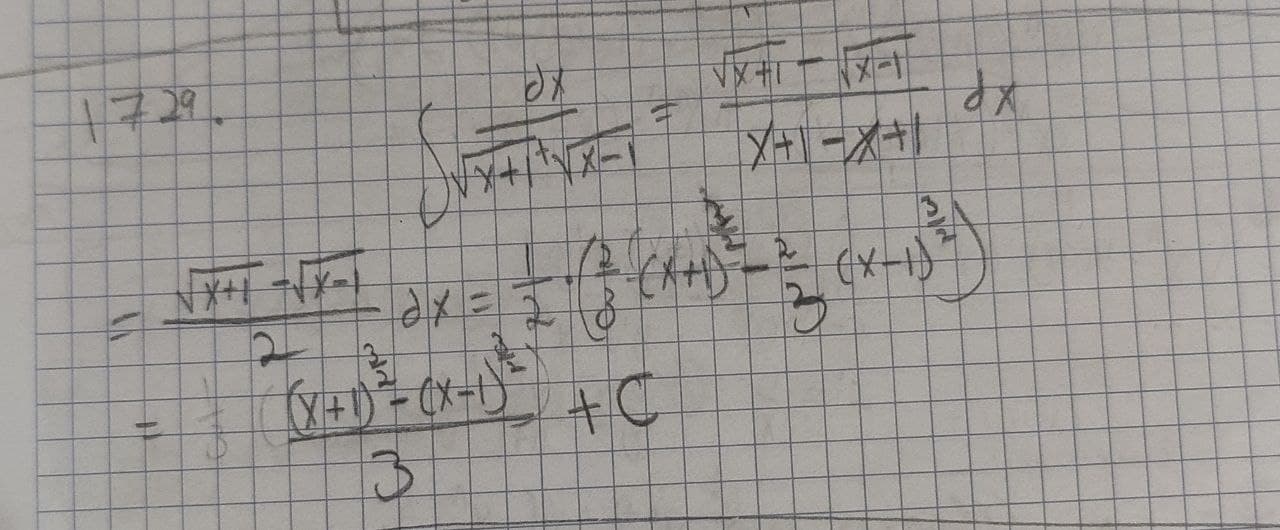 1729. ∫ dx/(√(x+1) + √(x-1)) = (√(x+1) - √(x-1))/(x+1-x+1) dx
= (√(x+1) - √(x-1))/2 dx = 1/2 · (2/3 (x+1)^(3/2) - 2/3 (x-1)^(3/2))
= ((x+1)^(3/2) - (x-1)^(3/2))/3 + C